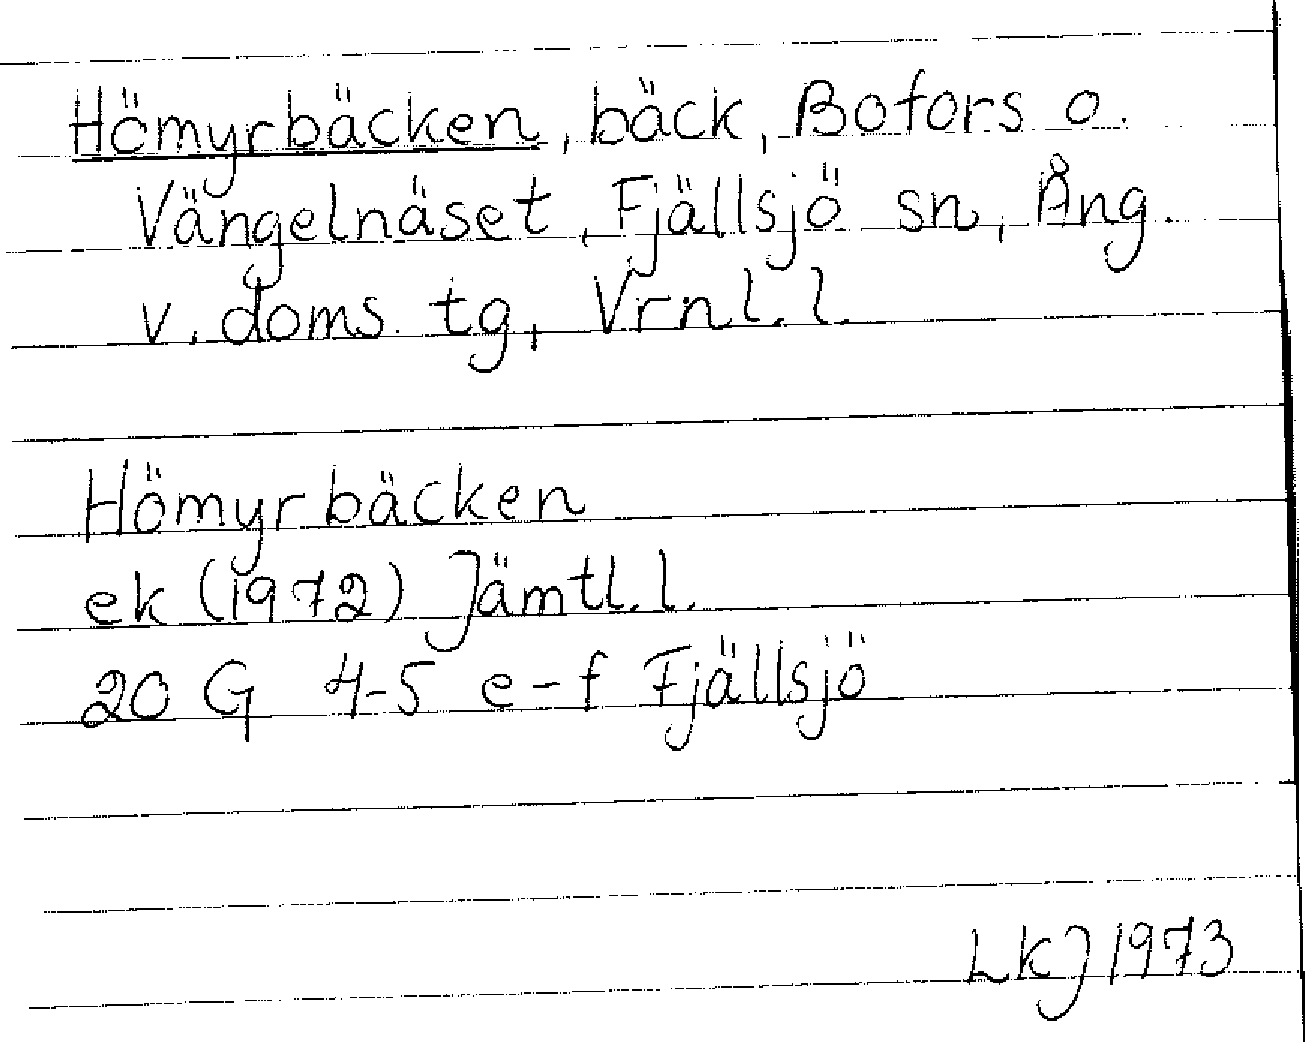 Hömyrbäcken, bäck, Bofors o.
Vängelnäset, Fjällsjö sn, Ång.
v. doms. tg, Vrnl. l.
Hömyrbäcken
ek (1972) Jämtl. l.
20 G 4-5 e-f Fjällsjö
LKJ 1973